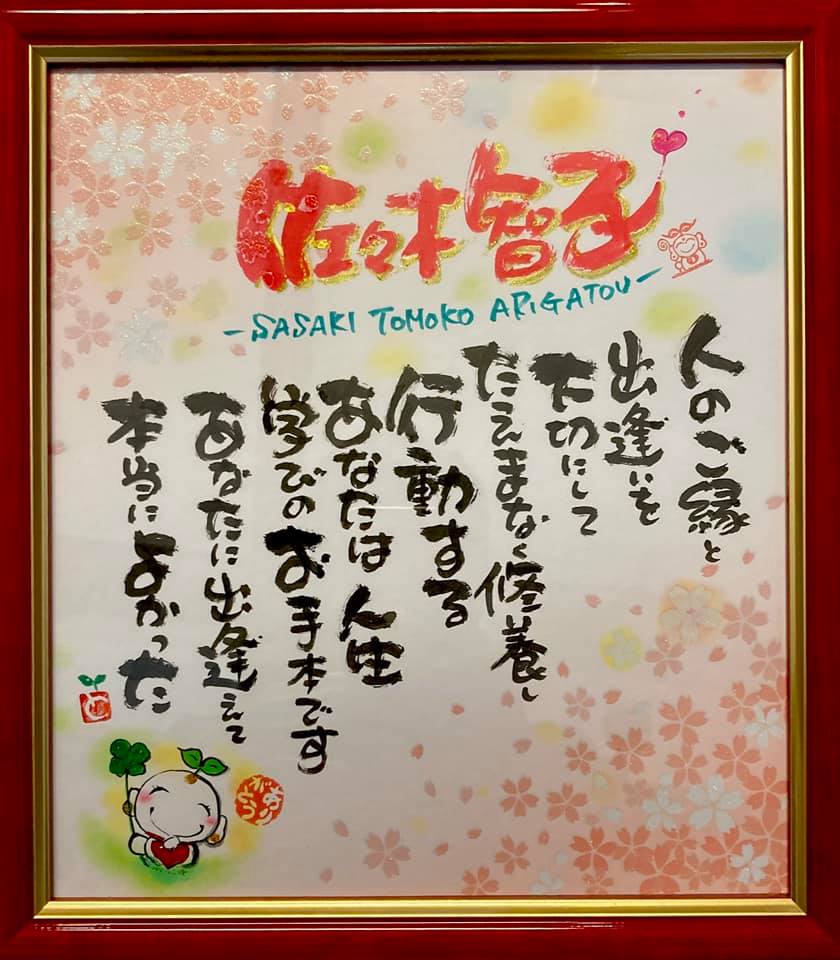 佐々木智子
-SASAKI TOMOKO ARIGATOU-
人のご縁と
出逢いを
大切にして
たえまなく修養し
行動する
あなたは人生
学びのお手本です
あなたに出逢えて
本当によかった
ありがとう